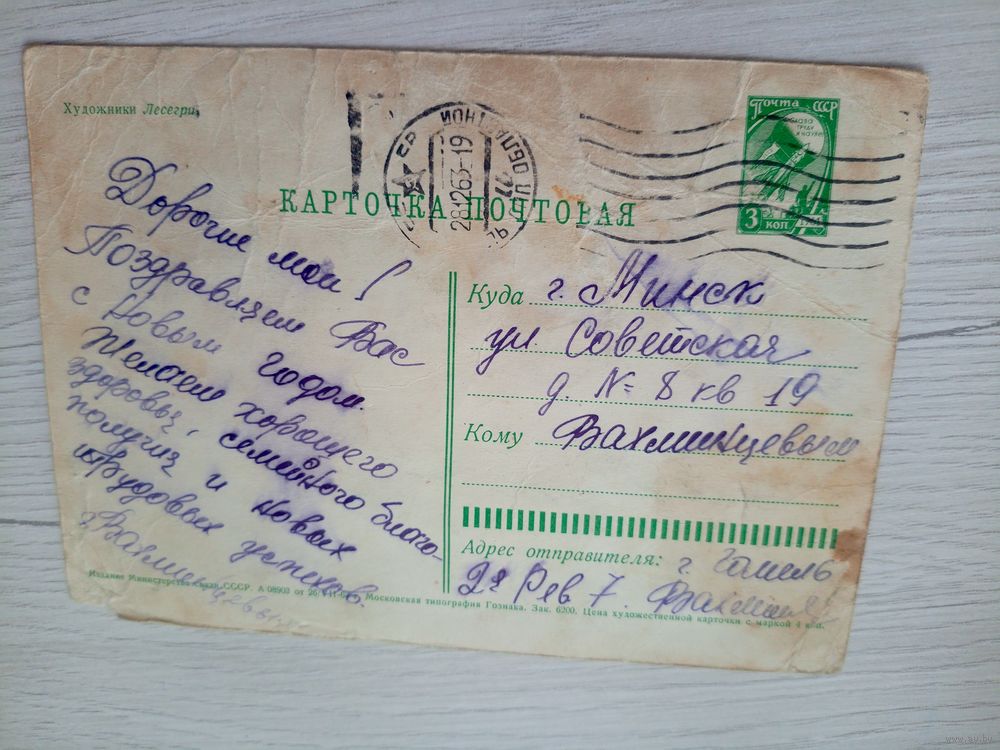 Художники Лесегри
ПОЧТА СССР
СЛАВА
ТРУДУ
И НАУКЕ
3 КОП
28 12 63-19
КАРТОЧКА ПОЧТОВАЯ
Дорогие мои!
Поздравляем Вас
с Новым годом.
Желаем хорошего
здоровья, семейного благо-
получия и новых
трудовых успехов.
Вахминцевы
Куда г. Минск
ул Советская
д. № 8 кв 19
Кому Вахминцевым
Адрес отправителя: г. Гомель
2я Рев 7. Вахмин
Издание Министерства связи СССР. А 08903 от 26/VII-63 Московская типография Гознака. Зак. 6200. Цена художественной карточки с маркой 4 коп.
www.ay.by